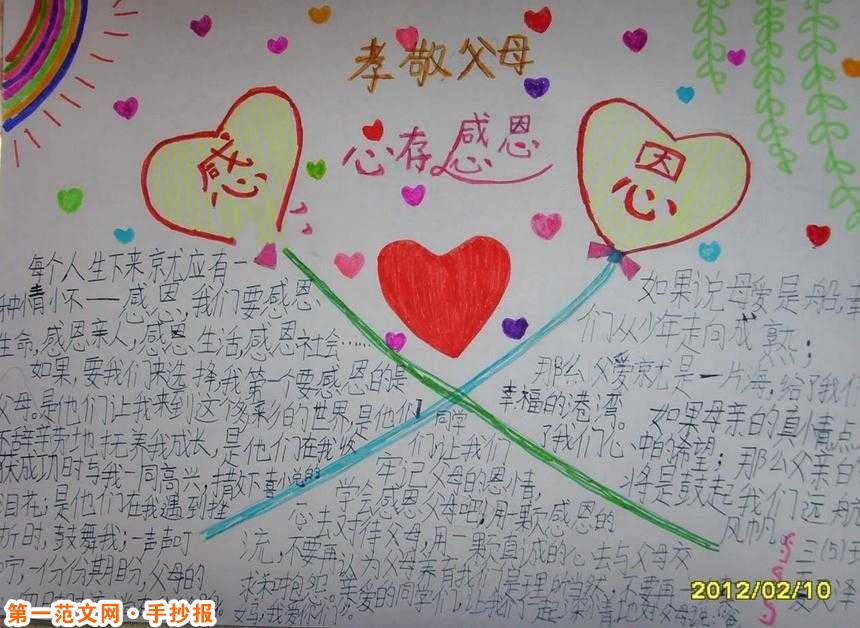 孝敬父母
心存感恩
感
恩
每个人生下来就应有一
种情怀——感恩，我们要感恩
生命，感恩亲人，感恩生活，感恩社会……
如果，要我们来选择，我第一个要感恩的是
父母。是他们让我来到这个多彩的世界，是他们
不辞辛劳地抚养我成长，是他们在我
成功时与我一同高兴，
泪花；是他们在我遇到挫
折时，鼓舞我；一声声叮
一份份期盼，父母的
同学
们让我们
牢记父母的恩情，
学会感恩父母吧！用一颗感恩的
心去对待父母，用一颗真诚的心去与父母交
流，不要再认为父母养育我们是理所当然；不要再
求和抱怨。亲爱的同学们，让我们
如果说母爱是船，
们从少年走向成熟；
那么父爱就是一片海，给了我们
幸福的港湾。
如果母亲的真情点
了我们心中的希望；那么父亲的
将是鼓起我们远航
风帆。
三(5)
2012/02/10
第一范文网·手抄报